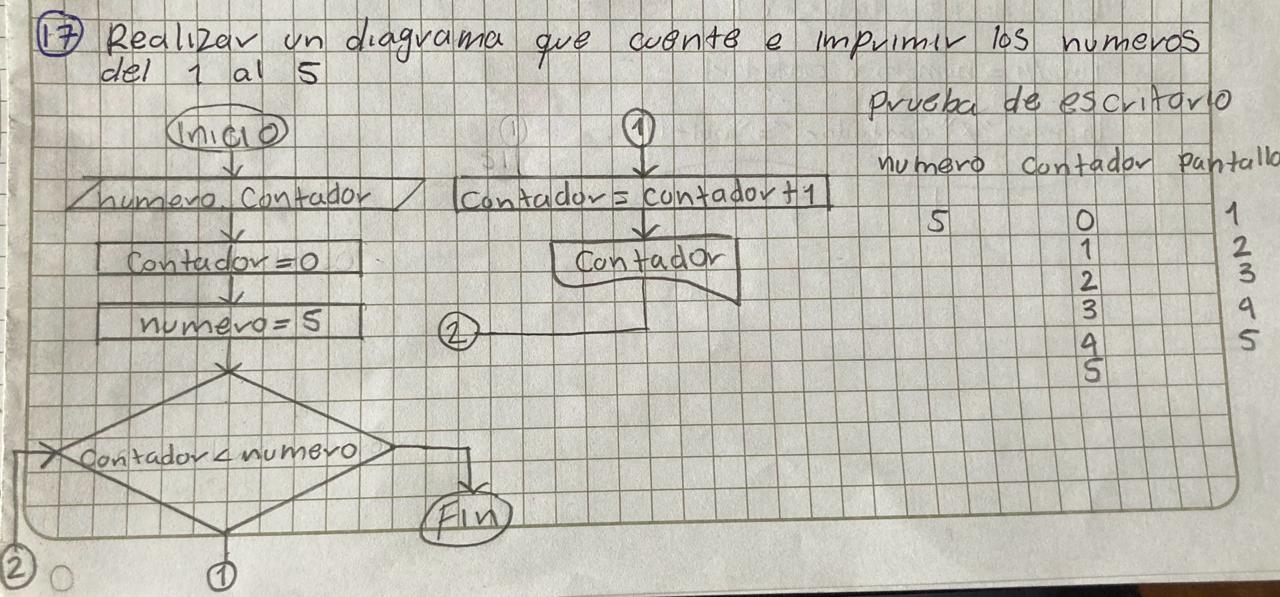 17 Realizar un diagrama que cuente e imprimir los numeros
del 1 al 5
Inicio
numero, Contador
Contador = 0
numero = 5
Contador < numero
Fin
2
1
1
Contador = contador + 1
Contador
2
Prueba de escritorio
numero contador pantalla
5 0 1
1 2
2 3
3 4
4 5
5